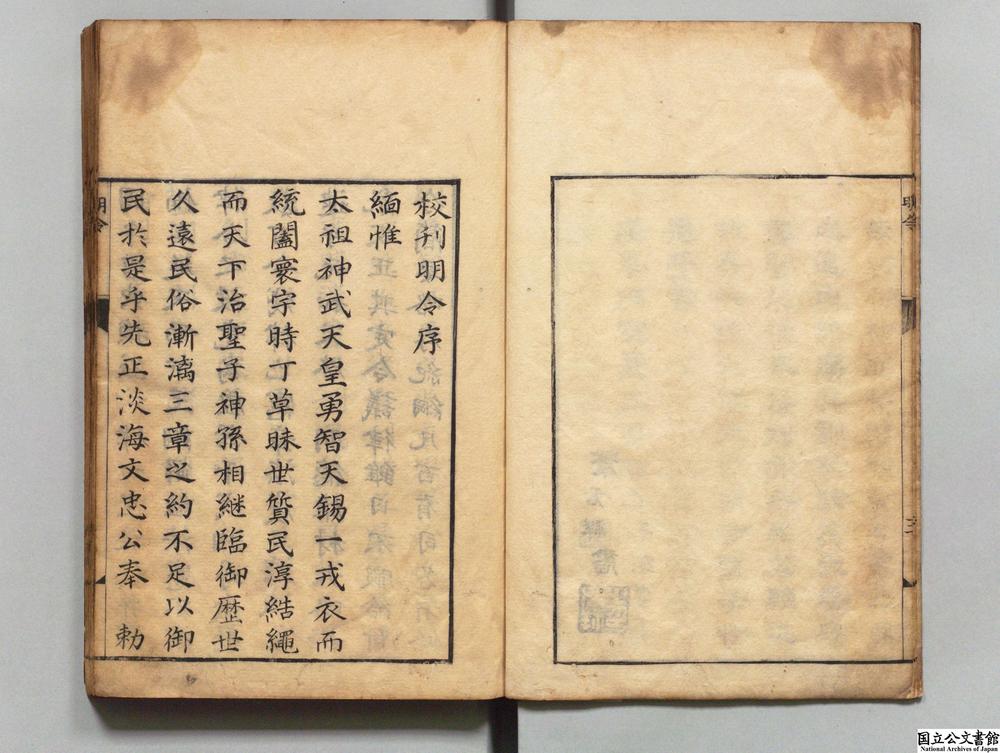 校刊明令序
緬惟
太祖神武天皇勇智天錫一戎衣而
統闔寰宇時丁草昧世質民淳結繩
而天下治聖子神孫相継臨御歷世
久遠民俗漸漓三章之約不足以御
民於是乎先正淡海文忠公奉　勅
明令
国立公文書館
National Archives of Japan